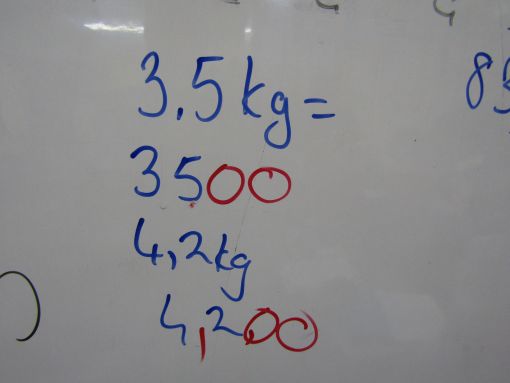 3.5 kg =
3500
4,2 kg
4,200